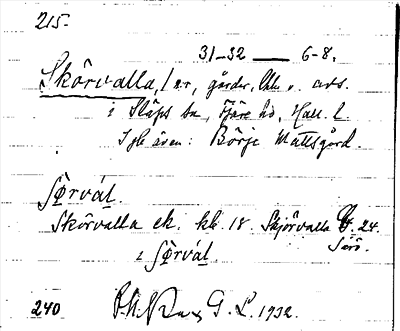 215.
31–32 — 6–8.
Skörvalla, 1 nr, gårdar, lhtr o. avs.
i Släps sn, Fjäre hd, Hall. l.
Jfr även: Börje Mattsgård.
ʃɵ̣rvál.
Skörvalla ek. kb. 18. Skjörvalla 24.
Särö.
i ʃɵ̣rvál.
240 G. L. 1932.